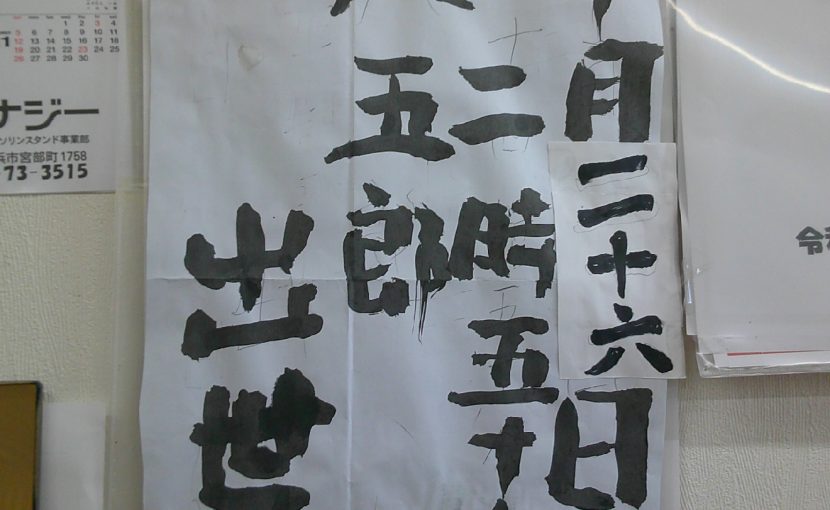 月二十六日
二時五十
五郎
出世
1 2 3 4
5 6 7 8 9 10 11
12 13 14 15 16 17 18
19 20 21 22 23 24 25
26 27 28 29 30
ナジー
ソリンスタンド事業部
浜市宮部町1758
73-3515
令